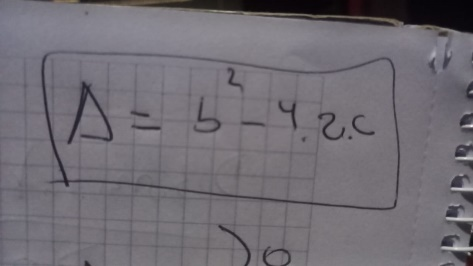 Δ = b² - 4.a.c
)o